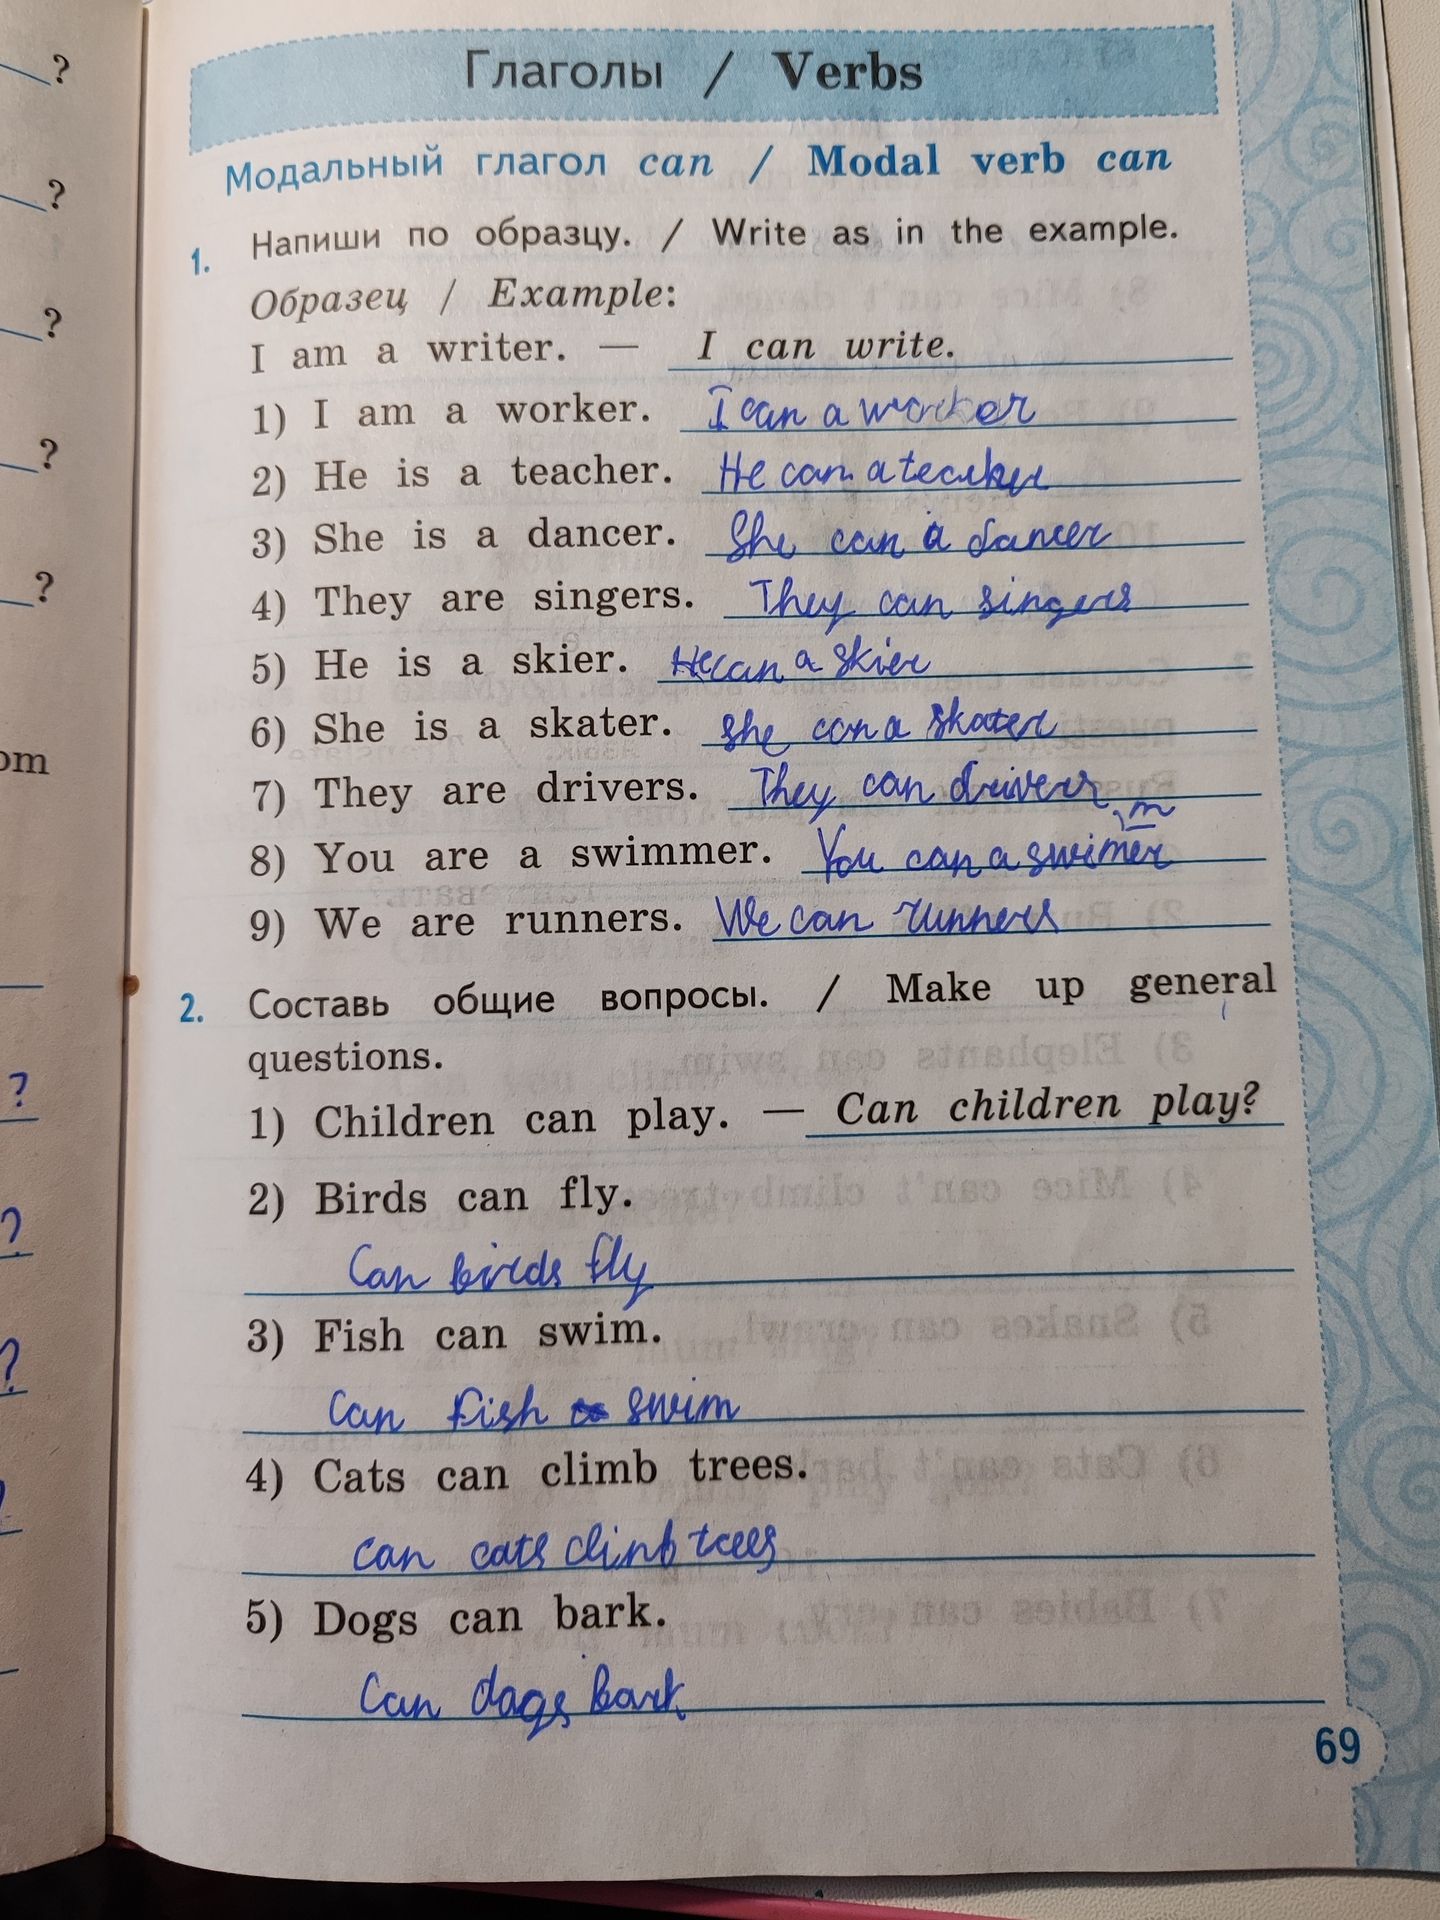 ?
?
?
?
?
om
?
?
?
Глаголы / Verbs
Модальный глагол can / Modal verb can
1. Напиши по образцу. / Write as in the example.
Образец / Example:
I am a writer. — I can write.
1) I am a worker. I can a worker
2) He is a teacher. He can a teacher
3) She is a dancer. She can a dancer
4) They are singers. They can singers
5) He is a skier. He can a skier
6) She is a skater. She can a skater
7) They are drivers. They can drivers
m
8) You are a swimmer. You can a swimer
9) We are runners. We can runners
2. Составь общие вопросы. / Make up general
questions.
1) Children can play. — Can children play?
2) Birds can fly.
Can birds fly
3) Fish can swim.
Can Fish swim
4) Cats can climb trees.
can cats climb trees
5) Dogs can bark.
Can dogs bark
69